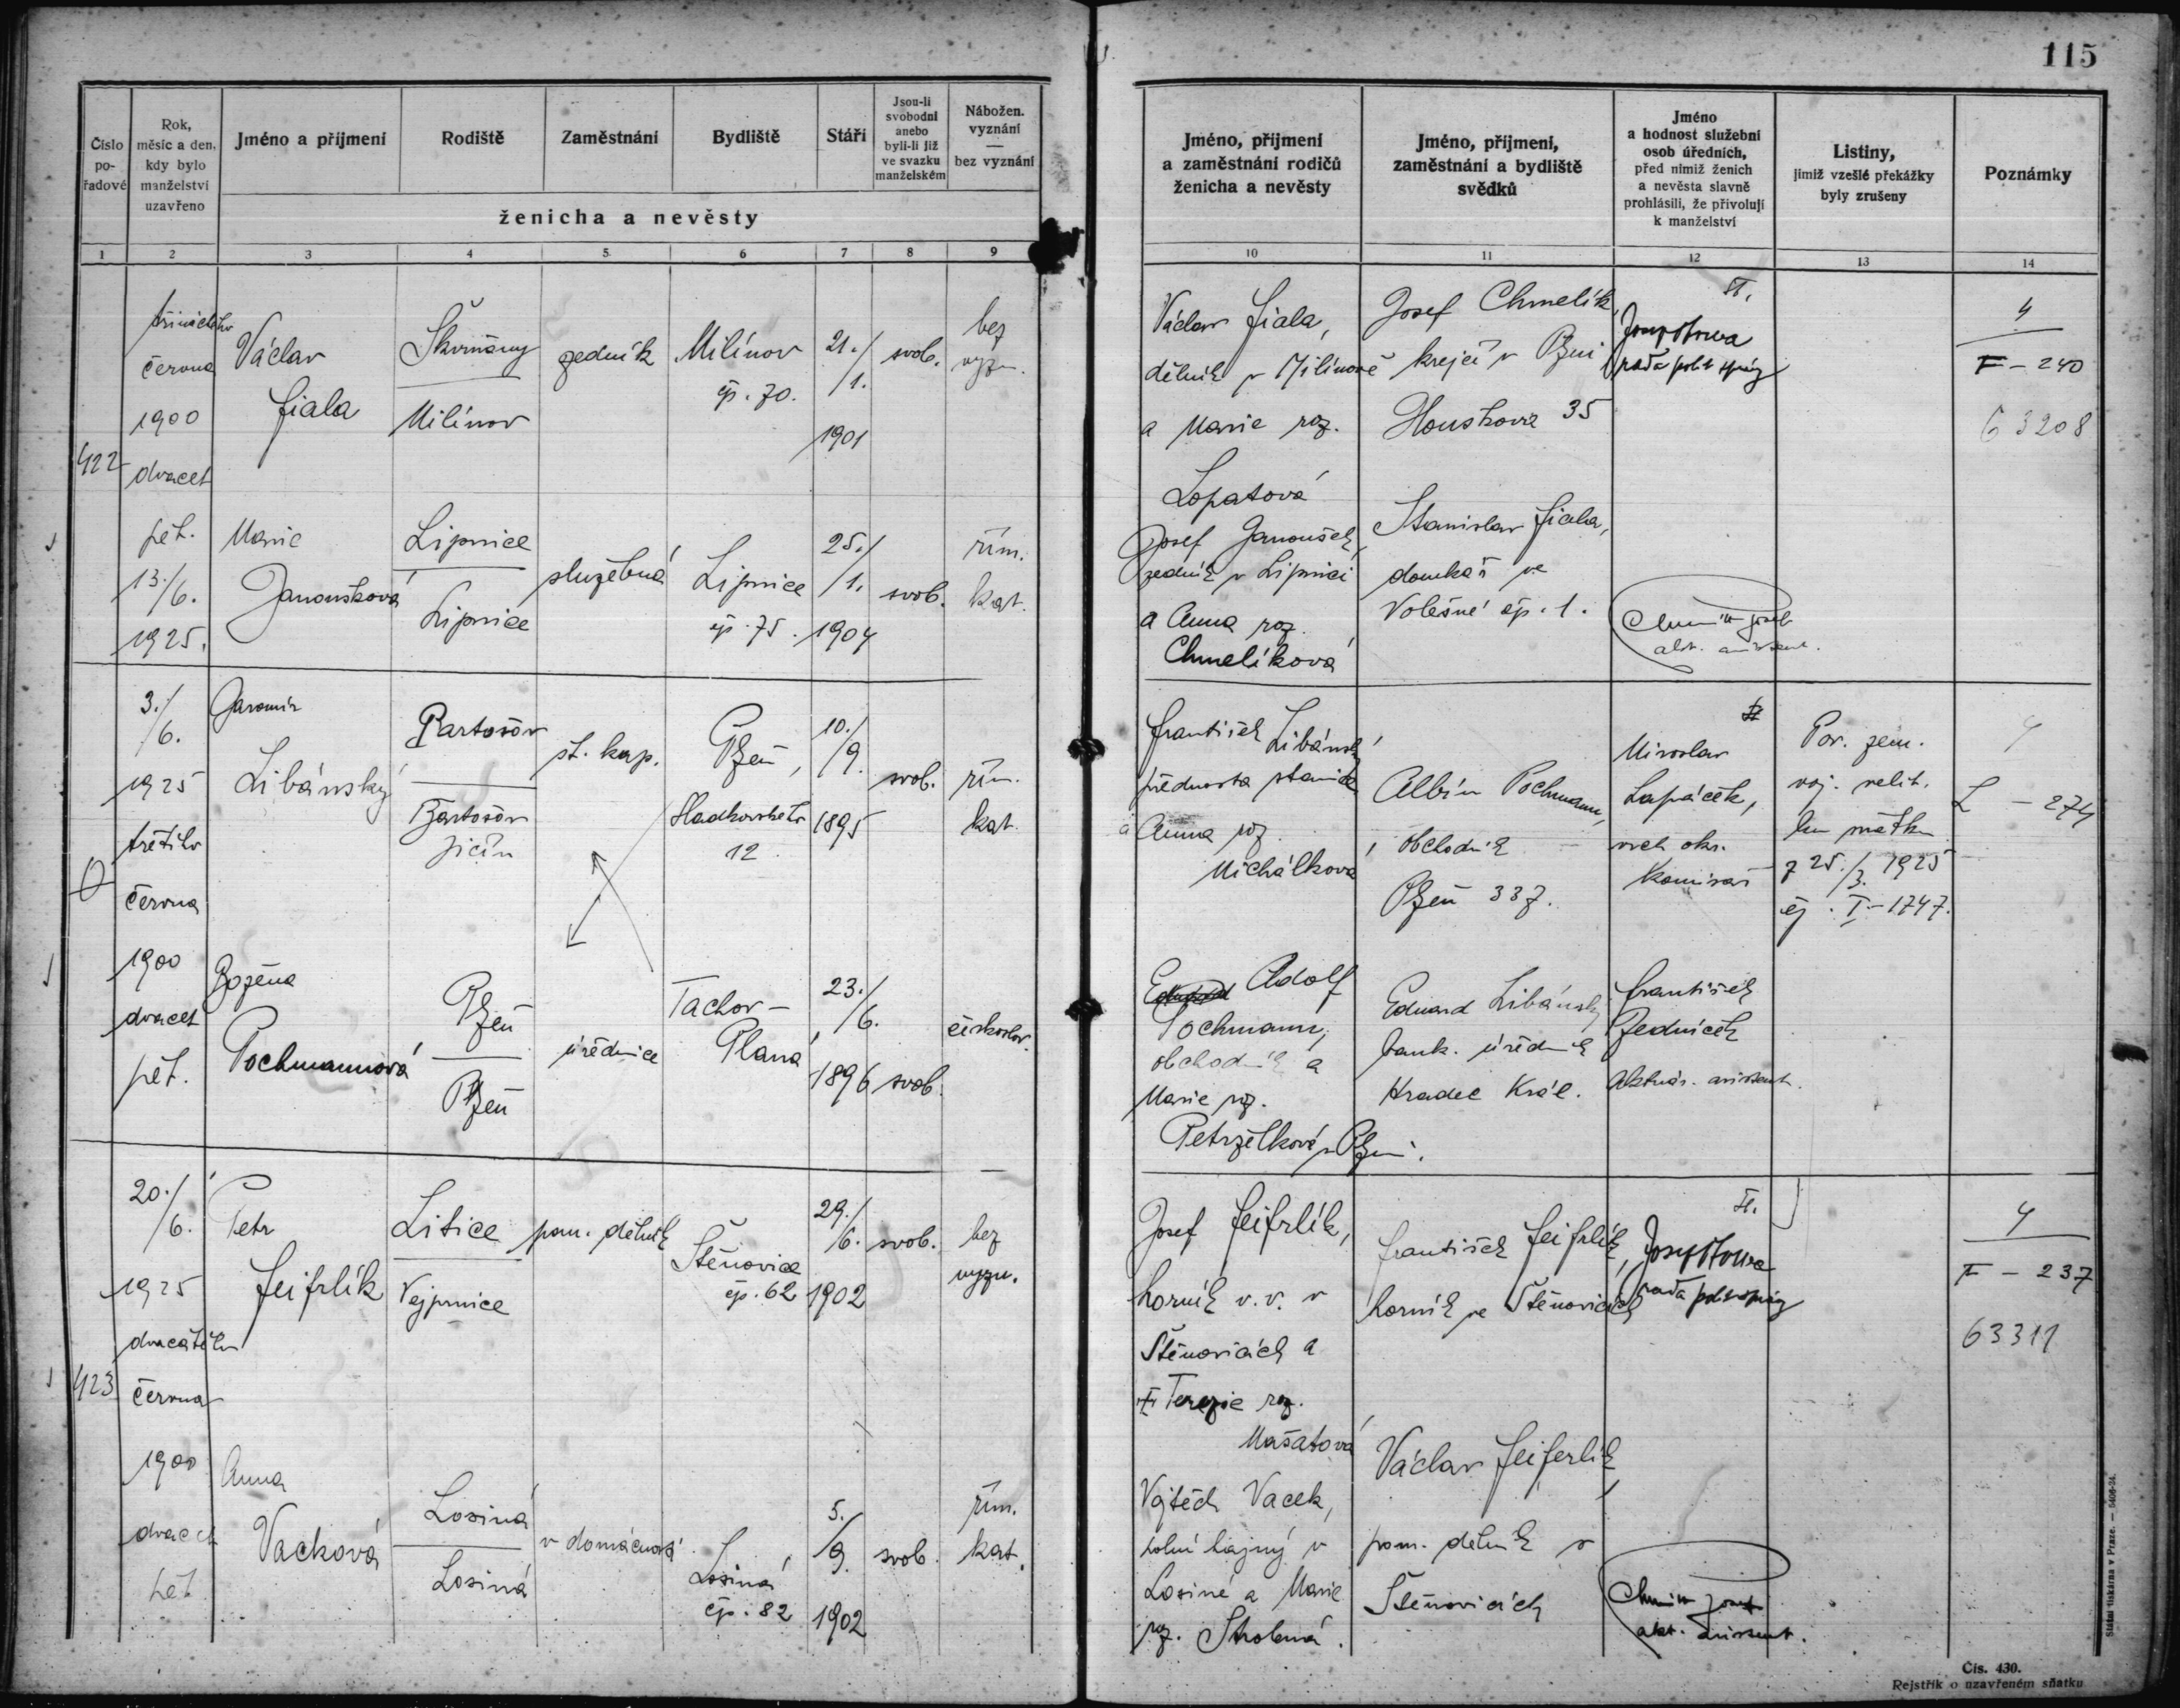 115
Číslo pořadové
Rok, měsíc a den, kdy bylo manželství uzavřeno
Jméno a příjmení
Rodiště
Zaměstnání
Bydliště
Stáří
Jsou-li svobodni anebo byli-li již ve svazku manželském
Nábožen. vyznání — bez vyznání
ženicha a nevěsty
Jméno, příjmení a zaměstnání rodičů ženicha a nevěsty
Jméno, příjmení, zaměstnání a bydliště svědků
Jméno a hodnost služební osob úředních, před nimiž ženich a nevěsta slavně prohlásili, že přivolují k manželství
Listiny, jimiž vzešlé překážky byly zrušeny
Poznámky
1 2 3 4 5 6 7 8 9 10 11 12 13 14
422
třináctého
června
1900
dvacet
pět.
13./6.
1925.
Václav
Fiala
Škvrňany
Milínov
zedník
Milínov
čp. 70.
21./1.
1901
svob.
bez
vyzn.
Václav Fiala,
dělník v Milínově
a Marie roz.
Lopatová
Josef Chmelík,
krejčí v Plzni
Houškova 35
II.
rada polit. správy
4
F - 240
63208
Marie
Janoušková
Lipnice
Lipnice
služebná
Lipnice
čp. 75.
25./1.
1904
svob.
řím.
kat.
Josef Janoušek,
zedník v Lipnici
a Anna roz.
Chmelíková
Stanislav Fiala,
domkář ve
Volešné čp. 1.
akt. assistent.
0
3./6.
1925
třetího
června
1900
dvacet
pět.
Jaromír
Libánský
Bartošov
Bartošov
Jičín
št. kap.
Plzeň,
Sladkovského
12
10./9.
1895
svob.
řím.
kat.
František Libánský
přednosta stanice
a Anna roz.
Michálková
Albín Pochmann,
obchodník
Plzeň 337.
II
Miroslav
Lapáček,
vrch. okr.
komisař
Pov. zem.
voj. velit.
ku sňatku
z 25./3. 1925
čj. I-1747.
4
L - 274
Božena
Pochmannová
Plzeň
Plzeň
úřednice
Tachov -
Planá
23./6.
1896
svob.
českoslov.
Adolf
Pochmann,
obchodník a
Marie roz.
Petrželková v Plzni.
Eduard Libánský
bank. úředník
Hradec Král.
František
Zedníček
Aktuár. assistent.
423
20./6.
1925
dvacátého
června
1900
dvacet
pět
Petr
Feifrlík
Litice
Vejprnice
pom. dělník
Štěnovice
čp. 62
29./6.
1902
svob.
bez
vyzn.
Josef Feifrlík,
horník v. v. v
Štěnovicích a
Terezie roz.
Mašatová
František Feifrlík,
horník ve Štěnovicích
II.
rada polit. správy
4
F - 237
63311
Anna
Vacková
Losiná
Losiná
v domácnosti
Losiná
čp. 82
5./9.
1902
svob.
řím.
kat.
Vojtěch Vacek,
polní hajný v
Losiné a Marie
roz. Strolená.
Václav Feiferlík,
pom. dělník v
Štěnovicích
akt. assistent.
Státní tiskárna v Praze. — 5408-24.
Čís. 430.
Rejstřík o uzavřeném sňatku